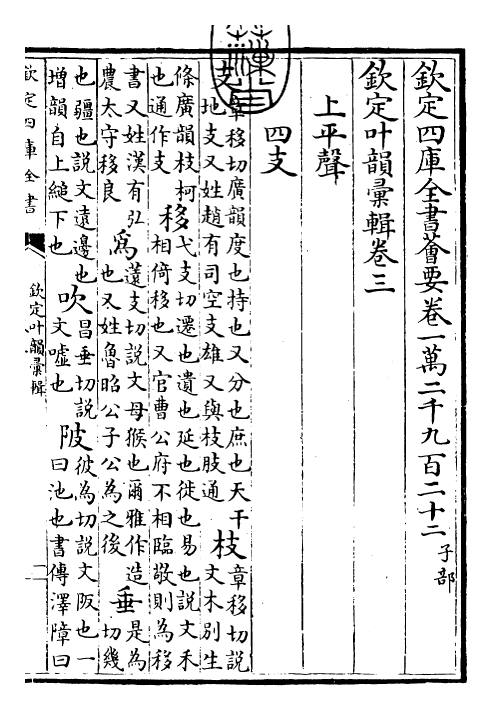 欽定四庫全書薈要卷一萬二千九百二十二 子部
欽定叶韻彙輯卷三
上平聲
四支
支 章移切廣韻度也持也又分也庶也天干
地支又姓趙有司空支雄又與枝肢通
枝 章移切說
文木別生
條廣韻枝柯
也通作支
移 弋支切遷也遺也延也徙也易也說文禾
相倚移也又官曹公府不相臨敬則為移
書又姓漢有弘
農太守移良
為 薳支切說文母猴也爾雅作造
也又姓魯昭公子公為之後
垂 是為
切幾
也疆也說文遠邊也
增韻自上縋下也
吹 昌垂切說
文噓也
陂 彼為切說文阪也一
曰池也書傳澤障曰
欽定四庫全書
欽定叶韻彙輯